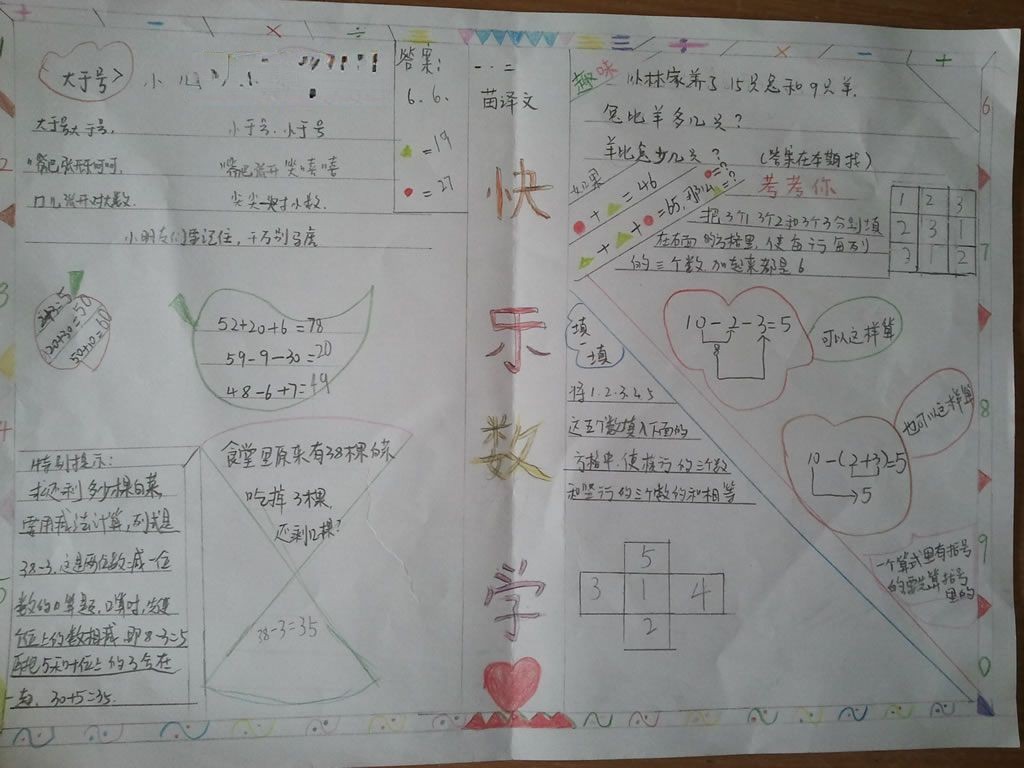 大于号>
大于号大于号,
小于号,小于号
嘴巴张开呵呵呵,
嘴巴张开笑嘻嘻
口儿张开对大数,
尖尖一头对小数,
小朋友们要记住,千万别马虎
答案:
6. 6.
▲=19
●=27
一.二
苗译文
快乐数学
20+30=50
52+20+6=78
59-9-30=20
48-6+7=49
特别提示:
求还剩多少棵白菜
需用减法计算,列式是
38-3,这是两位数减一位
数的口算题,口算时,先把
个位上的数相减,即8-3=5
再把5和十位上的3合在
一起,30+5=35.
食堂里原来有38棵白菜
吃掉3棵,
还剩几棵?
38-3=35
趣味
小林家养了15只兔和9只羊,
兔比羊多几只?
羊比兔少几只?
(答案在本期找)
如果
●+▲=46
▲+▲+●=65,那么
●=?
▲=?
考考你
把3个1,3个2和3个3分别填
在右面的方格里,使每行每列
的三个数加起来都是6
1 2 3
2 3 1
3 1 2
填一填
将1.2.3.4.5
这五个数填入下面的
方格中,使横行的三个数
和竖行的三个数的和相等
5
3 1 4
2
10-2-3=5
8
可以这样算
10-(2+3)=5
5
也可以这样算
一个算式里有括号
的要先算括号
里的
6
7
8
9
0